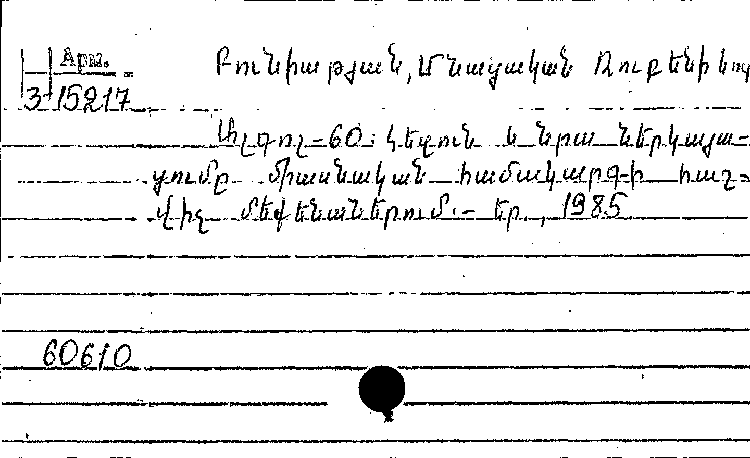 Арм.
3-15217
Բունիաթյան, Մնացական Ռուբենի
Ալգոլ-60: Լեզուն և նրա ներկայա-
ցումը միասնական համակարգի հաշ-
վիչ մեքենաներում.- Եր., 1985
60610